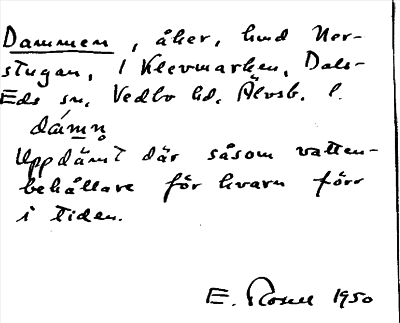 Dammen, åker, hmd Nor-
stugan, 1 Klevmarken, Dals-
Eds sn, Vedbo hd, Älvsb. l.
dámn̥
Uppdämt där såsom vatten-
behållare för kvarn förr
i tiden.
E. Rosell 1950